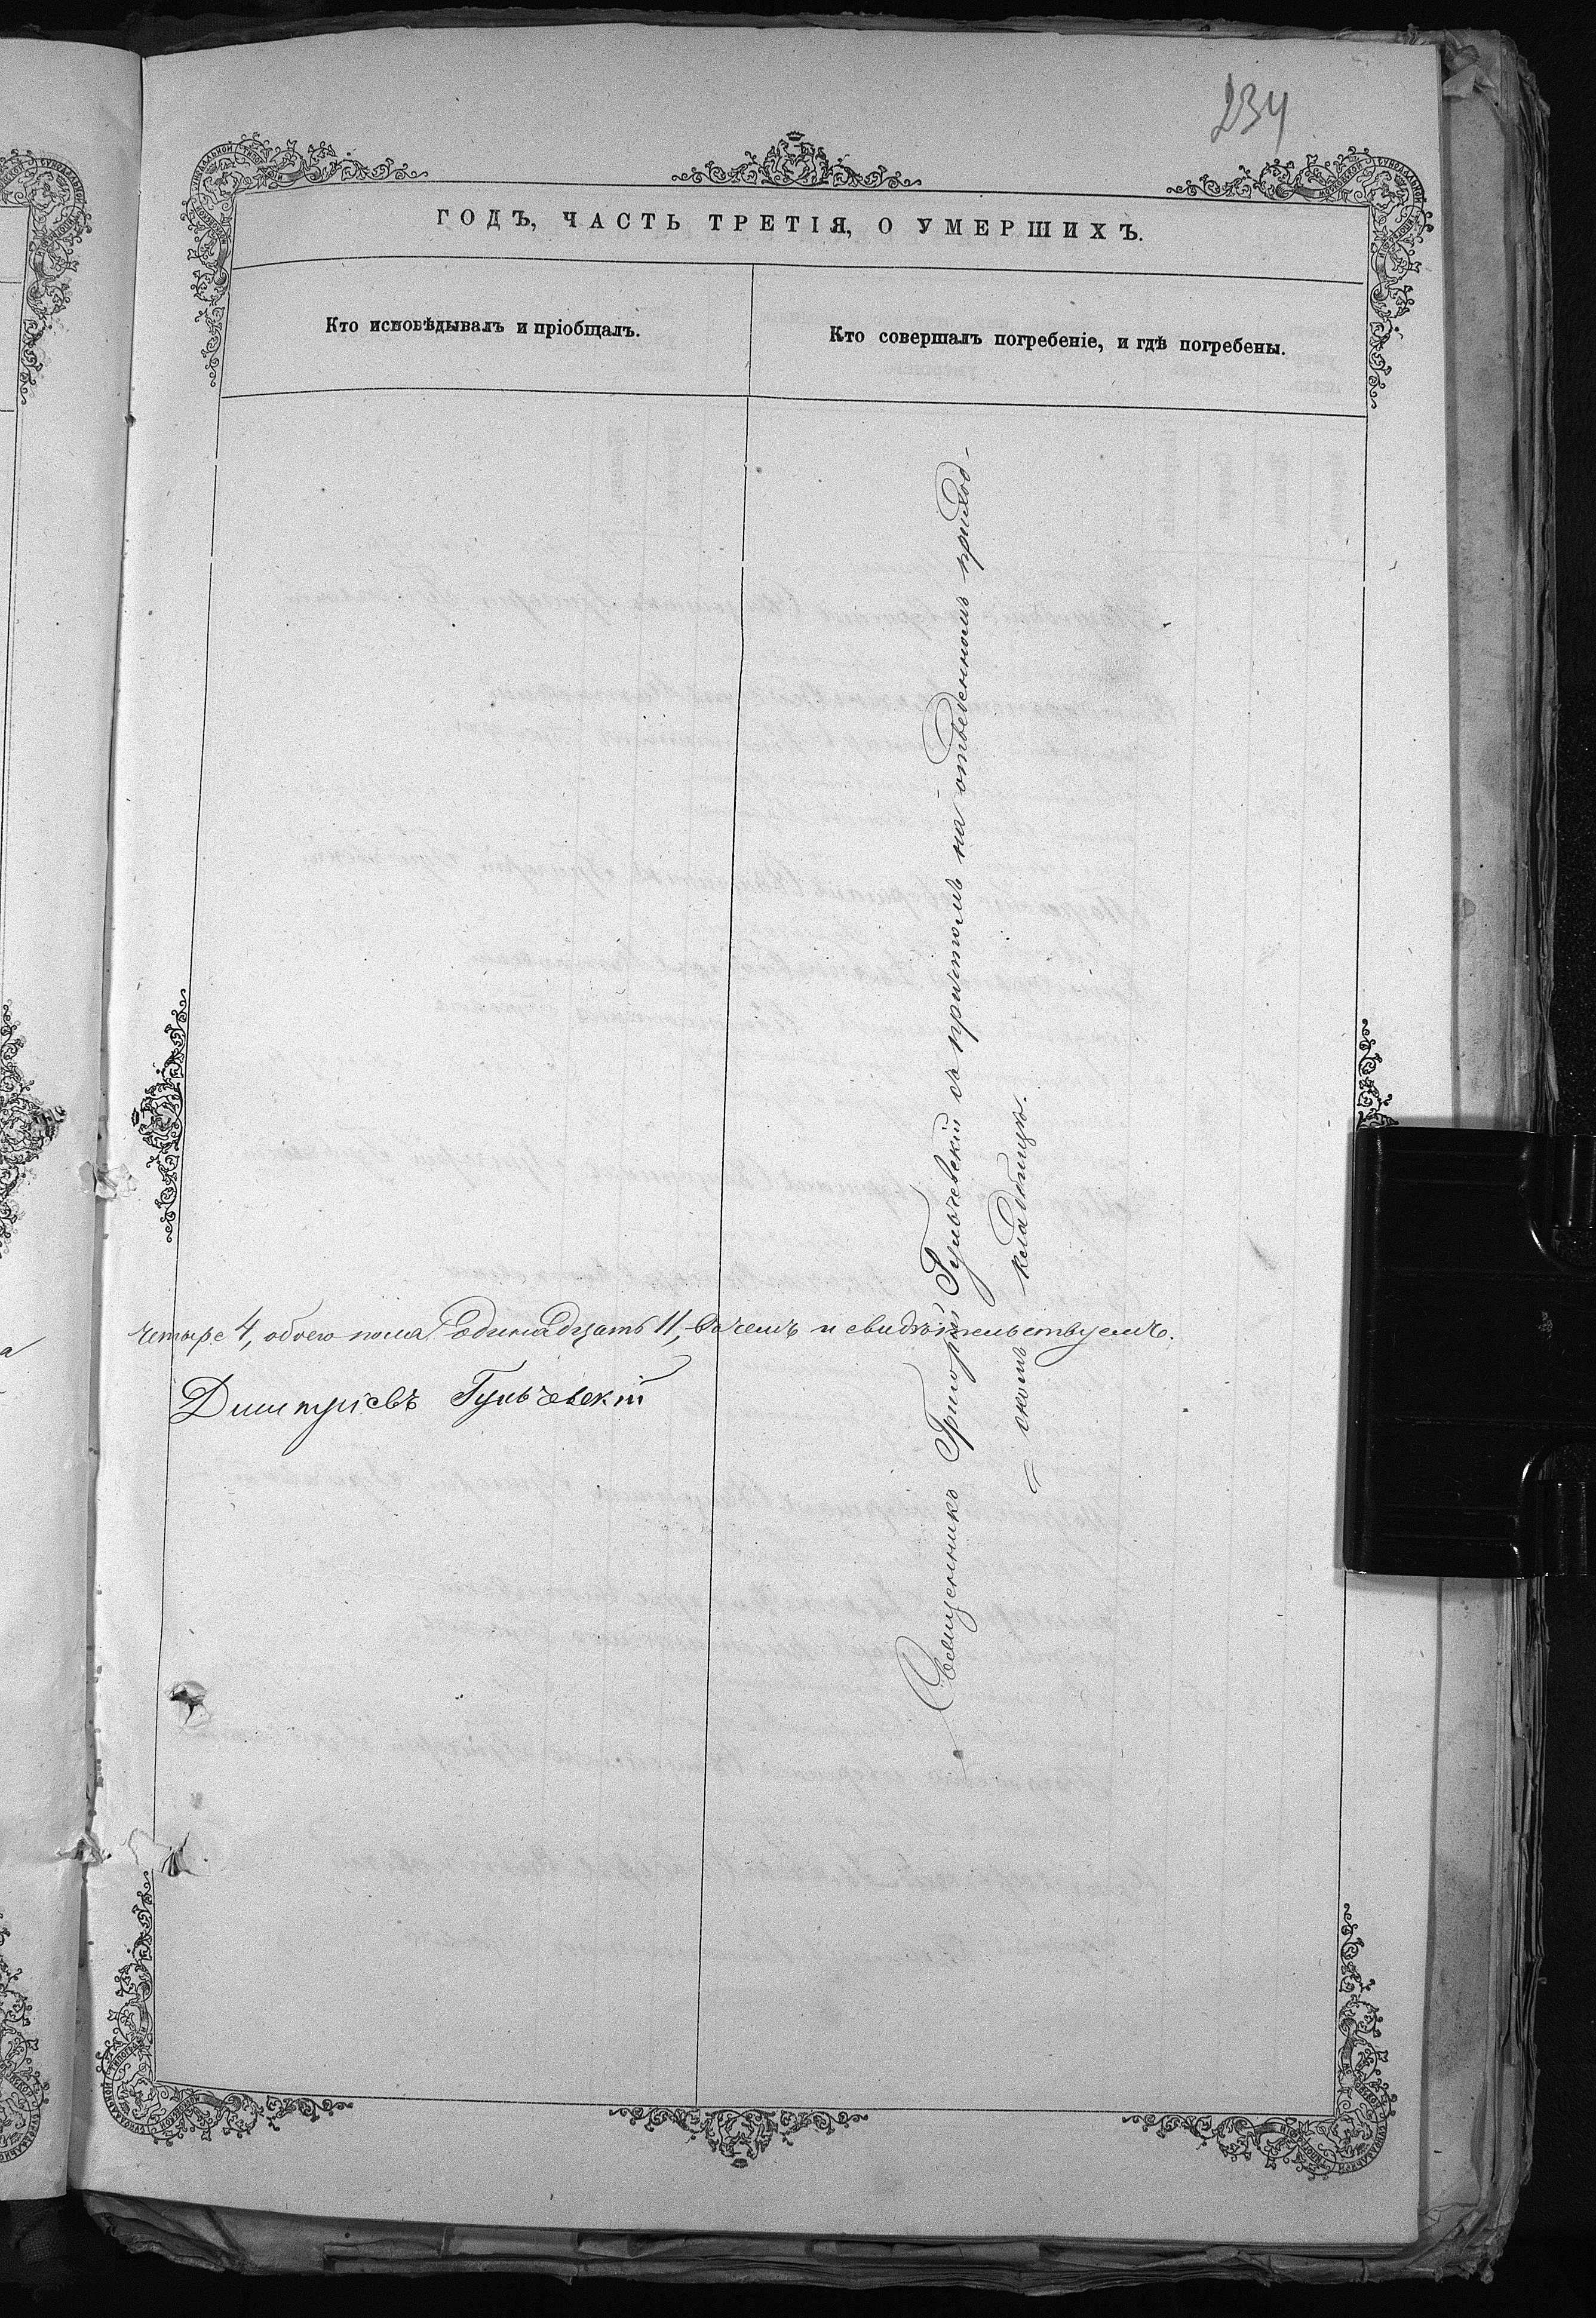 234
ГОДЪ, ЧАСТЬ ТРЕТІЯ, О УМЕРШИХЪ.
Кто исповѣдывалъ и пріобщалъ.
Кто совершалъ погребеніе, и гдѣ погребены.
Священникъ Григорій Гульчевскій съ причтомъ на отведенномъ приход-
скомъ кладбищѣ.
четыре 4, обоего пола одинадцать 11, въ чемъ и свидѣтельствуемъ.
Димитріевъ Гульчевскій